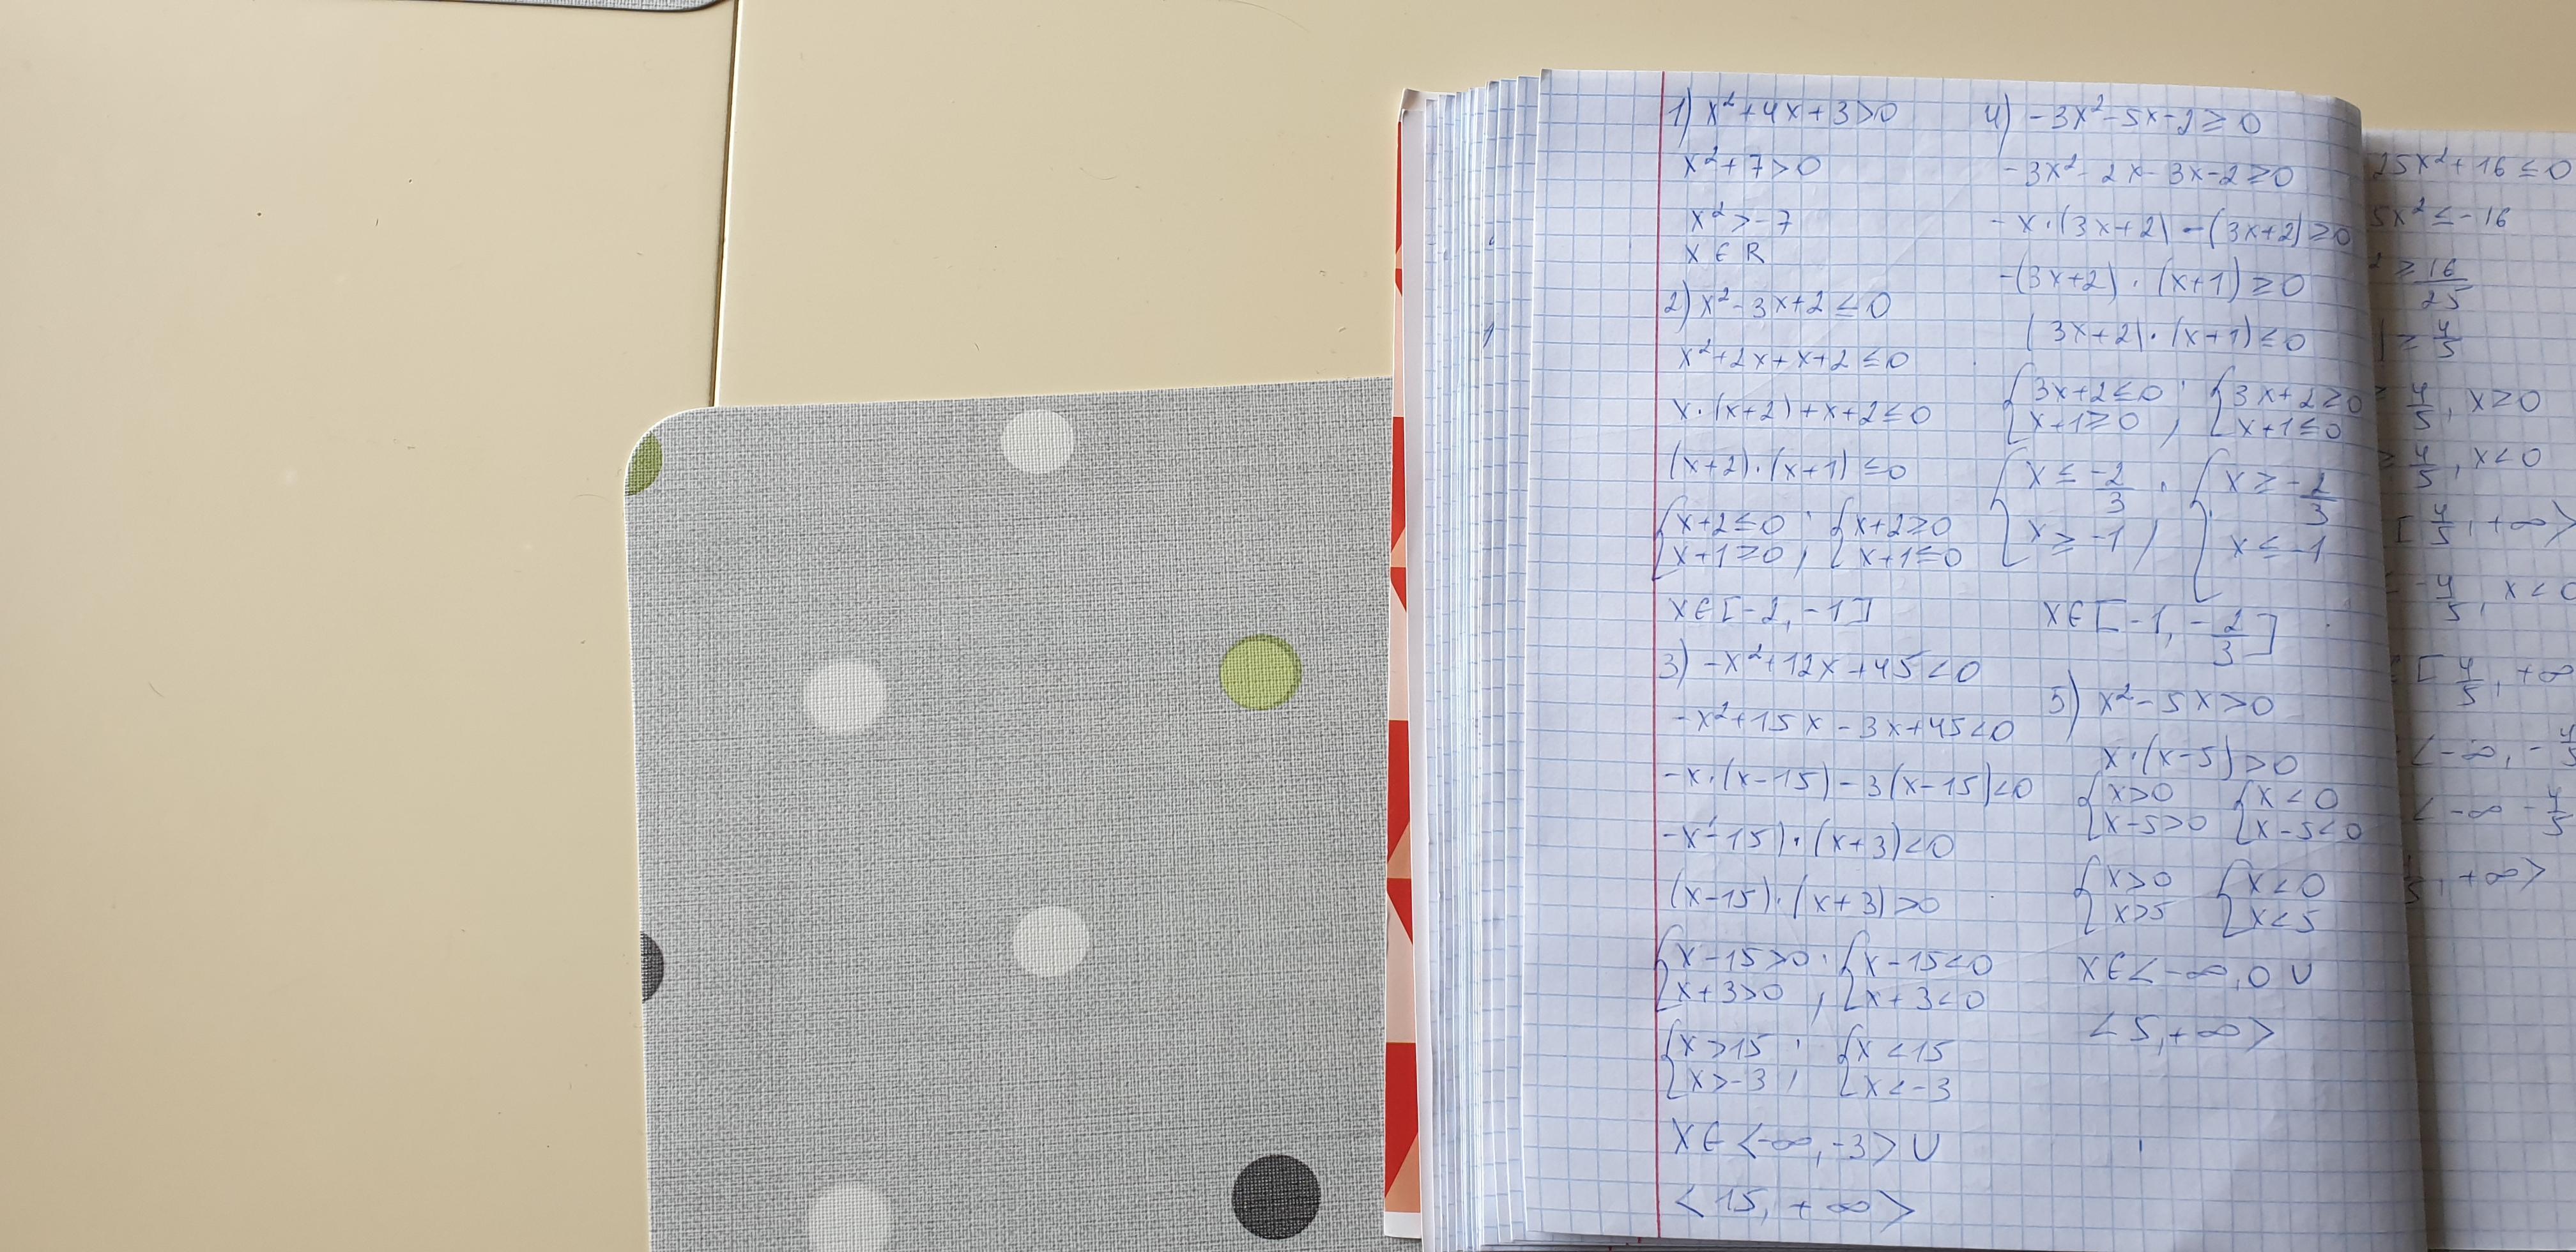 1) x²+4x+3>0
x²+7>0
x²>-7
x∈R
2) x²-3x+2≤0
x²+2x+x+2≤0
x·(x+2)+x+2≤0
(x+2)·(x+1)≤0
{x+2≤0 ; {x+2≥0
{x+1≥0 , {x+1≤0
x∈[-2,-1]
3) -x²+12x+45<0
-x²+15x-3x+45<0
-x·(x-15)-3(x-15)<0
-x-15)·(x+3)<0
(x-15)·(x+3)>0
{x-15>0 ; {x-15<0
{x+3>0 , {x+3<0
{x>15 ; {x<15
{x>-3 , {x<-3
x∈<-∞,-3>∪
<15,+∞>
4) -3x²-5x-2≥0
-3x²-2x-3x-2≥0
-x·(3x+2)-(3x+2)≥0
-(3x+2)·(x+1)≥0
(3x+2)·(x+1)≤0
{3x+2≤0 ; {3x+2≥0
{x+1≥0 , {x+1≤0
{x≤-2/3 ; {x≥-2/3
{x≥-1 , {x≤-1
x∈[-1,-2/3]
5) x²-5x>0
x·(x-5)>0
{x>0 {x<0
{x-5>0 {x-5<0
{x>0 {x<0
{x>5 {x<5
x∈<-∞,0∪
<5,+∞>
25x²+16≤0
5x²≤-16
≥16/25
≥4/5
4/5, x≥0
4/5, x<0
[4/5,+∞>
-4/5, x<0
[4/5,+∞
<-∞,-4/5
<-∞-4/5
,+∞>